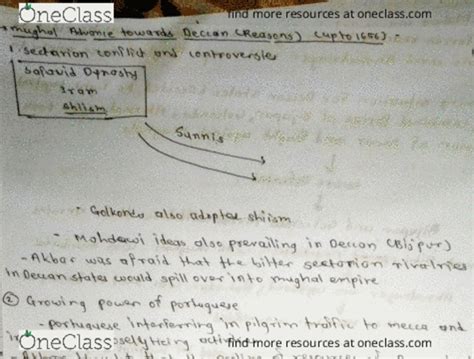 OneClass
find more resources at oneclass.com
mughal Advance towards Deccan (Reasons) (upto 1656) :-
1. sectarian conflict and controversies
Safavid Dynasty
Iran
Shiism
Sunnis
- Golkonda also adopted shiism
- Mahdawi ideas also prevailing in Deccan (Bijpur)
- Akbar was afraid that the bitter sectarian rivalries
in Deccan states would spill over into mughal empire
② Growing power of portuguese
- portuguese interferring in pilgrim traffic to mecca and
OneClass
find more resources at oneclass.com